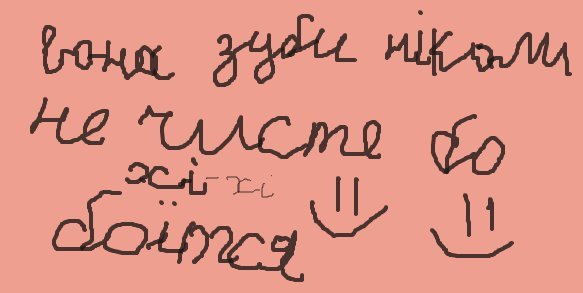 вона зуби ніколи
не чисте бо
хі-хі
боїтся